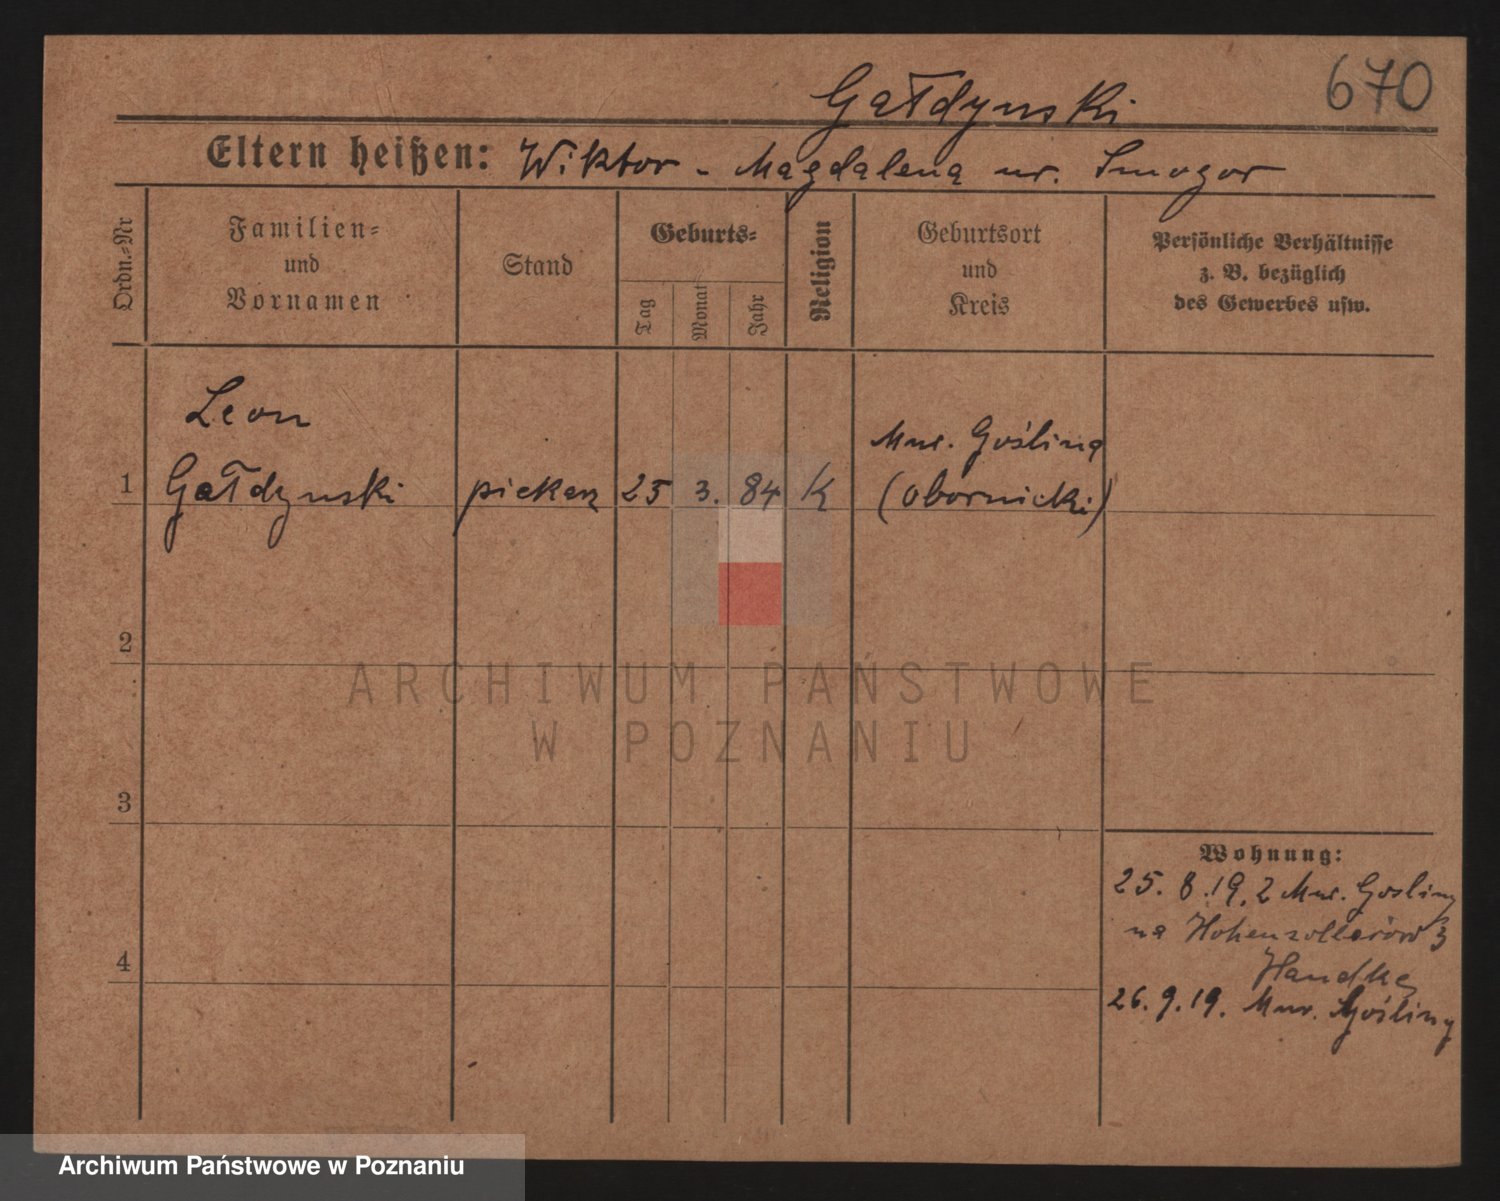 Gałdynski
670
Eltern heißen: Wiktor - Magdalena ur. Smogor
Ordn.-Nr
Familien-
und
Vornamen
Stand
Geburts-
Tag
Monat
Jahr
Religion
Geburtsort
und
Kreis
Persönliche Verhältnisse
z. B. bezüglich
des Gewerbes usw.
Leon
1 Gałdynski piekarz 25 3. 84 K
Mur. Goślina
(obornicki)
2
ARCHIWUM PAŃSTWOWE
W POZNANIU
3
Wohnung:
25. 8. 19. z Mur. Gosliny
na Hohenzollerów 3
Handke
4
26. 9. 19. Mur. Gośliny
Archiwum Państwowe w Poznaniu